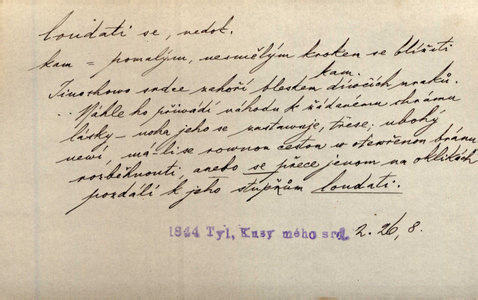 loudati se, nedok.
kam = pomalým, nesmělým krokem se blížiti
kam.
Tinochowo srdce zahoří bleskem dívčích zraků.
.. Náhle ho přivádí náhodu k žádanému chrámu
lásky – noha jeho se zastavuje, třese. ubohý
neví, má-li se rovnou cestou w otewřenou bránu
rozběhnouti, anebo se přece jenom na oklikách
pozdálí k jeho stupňům loudati.
1844 Tyl, Kusy mého srd. 2. 26, 8.